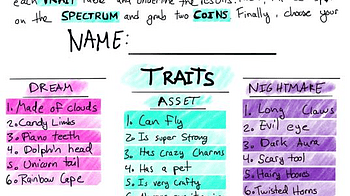 each TRAIT Table and underline the results.
on the SPECTRUM and grab two COINS Finally, choose your
NAME:
TRAITS
DREAM
ASSET
NIGHTMARE
1. Made of clouds
2. Candy Limbs
3. Piano teeth
4. Dolphin head
5. Unicorn tail
6. Rainbow Cape
1. Can fly
2. Is super Strong
3. Has Crazy Charms
4. Has a pet
5. Is very crafty
1. Long Claws
2. Evil eye
3. Dark Aura
4. Scary tool
5. Hairy bones
6. Twisted Horns